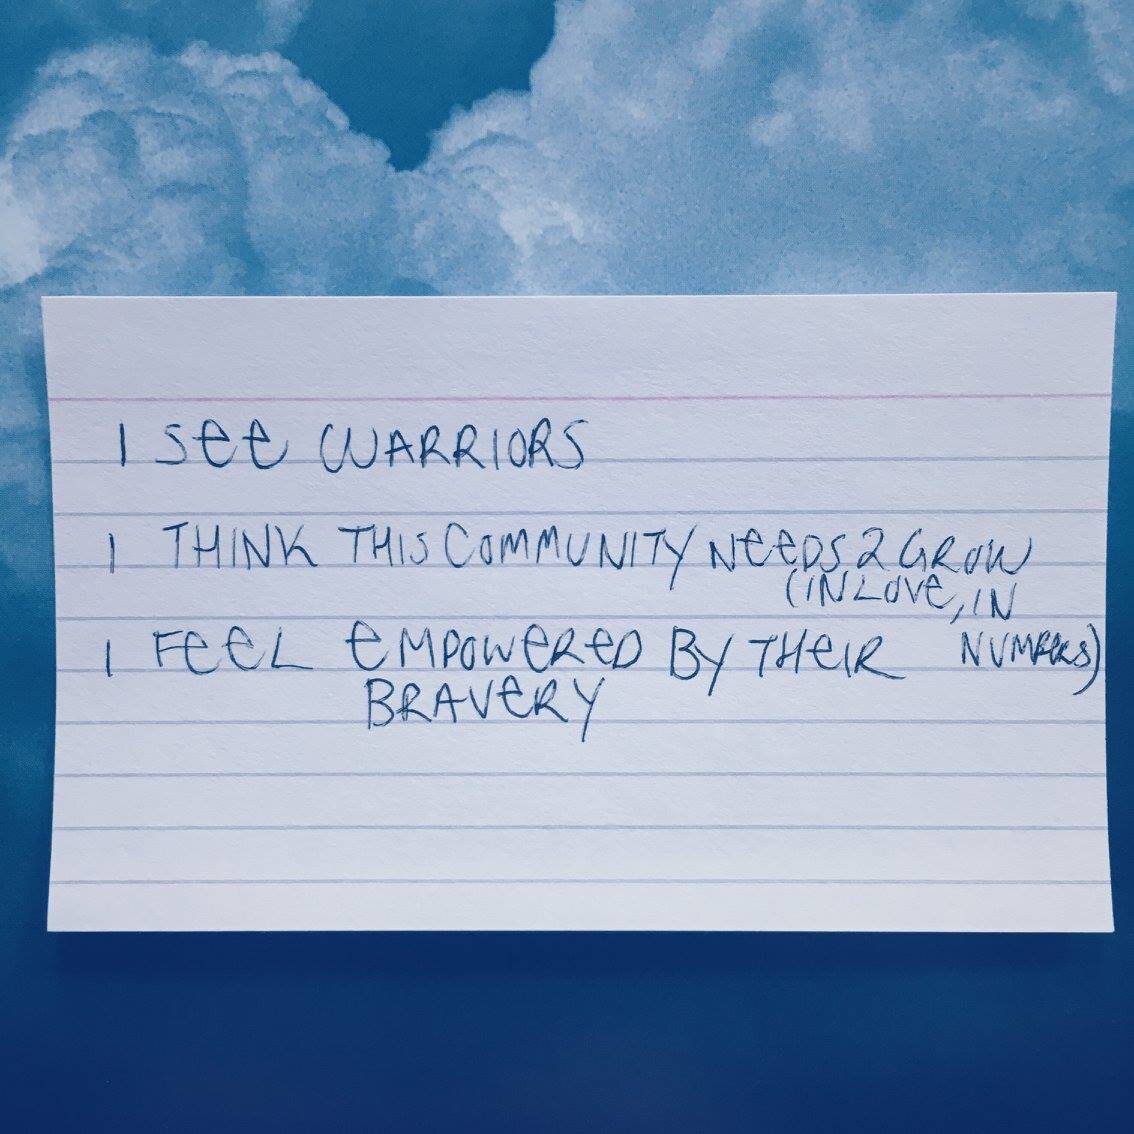 I See WARRIORS
I THINK THIS COMMUNITY NeeDS 2 GROW
(IN LOVE, IN
I FeeL eMPOWeReD BY THeIR NUMBeRS)
BRAVeRY